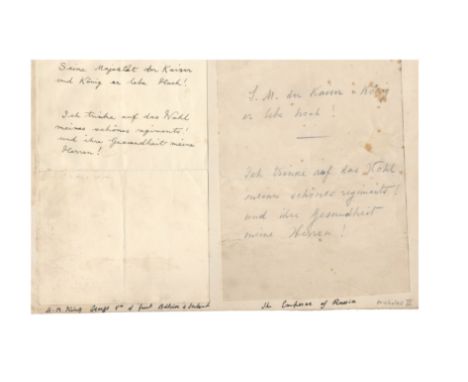 Seine Majestät der Kaiser
und König er lebe Hoch!
Ich trinke auf das Wohl
meines schönes regiments!
und ihre Gesundheit meine
Herren!
S. M. der Kaiser u König
er lebe hoch!
Ich trinke auf das Wohl
meines schönes regiments!
und ihr Gesundheit
meine Herren!
H.M. King George 5th of Great Britain & Ireland
The Emperor of Russia
Nicholas II